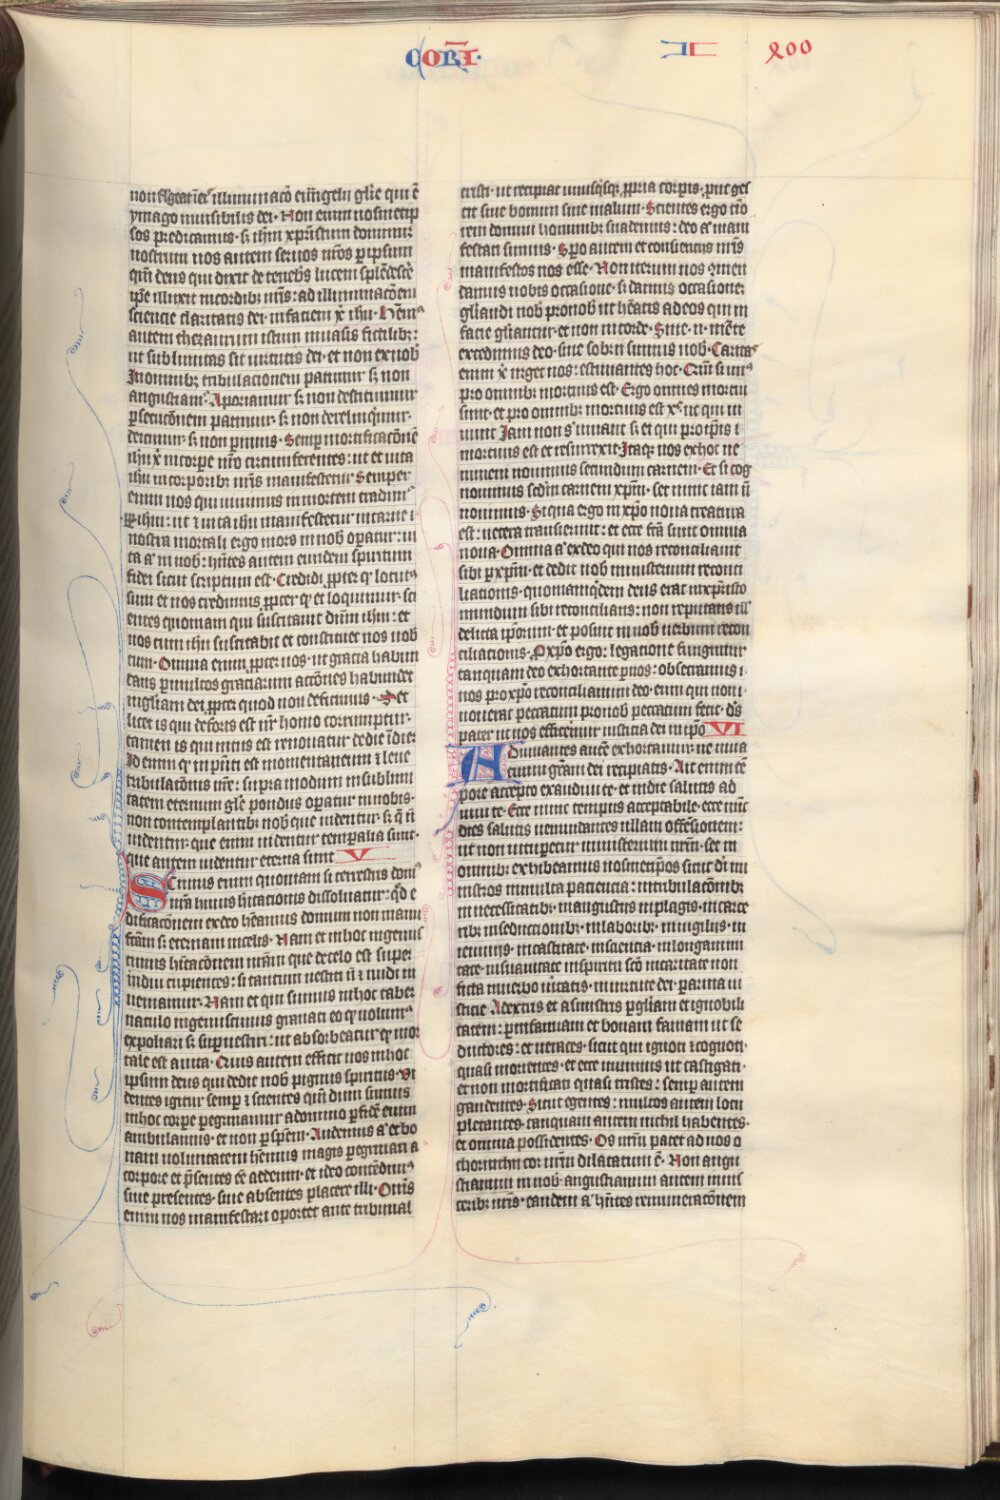 CORI· II 200
non fulgeat in eis illuminacō euangelii glīe qui ē
ymago inuisibilis dei· Non enim nosmetip
sos predicamus· s; ihm xpristum dominum
nostrum nos autem seruos uros p ipsum
qm deus qui dixit de tenebs lucem splēdescē
ipe illuxit in cordib; nris: ad illuminacōem
sciencie claritatis dei· in faciem x ihu· Hem
autem thezaurum istum in uasis fictilib;:
ut sublimitas sit uirtutis dei· et non ex nob
In omnib; tribulacionem patimur s; non
angustiam· Aporiamur s; non destituimur
psecucōnem patimur· s; non derelinqimur·
deicimur· s; non pimus· Semp mortificacōnē
ihu x in corpe nro circumferentes: ut et uita
ihu in corporib; nris manifestetur Semper
enim nos qui uiuimus in mortem tradim
ppt ihm: ut 2 uita ihu manifestetur in carne
nostra mortali ergo mors in nob opatur: ui
ta a in nob: hntes autem eundem spiritum
fidei sicut scriptum est· Credidi ppter q locut
sum et nos credimus ppter q et loquimur· sci
entes quoniam qui suscitauit dnm ihm: et
nos cum ihu suscitabit et constituet nos uob
cum· Omnia enim ppter uos· ut gracia habun
dans p multos graciarum accōnes habundet
in gliam dei ppter quod non deficimus· Set
licet is qui deforis est nr homo corrumptur·
tamen is qui intus est renouatur de die ī die:
Id enim q in pnti est momentaneum 2 leue
tribulacōnis nre: supra modum in sublimi
tatem eternum gle pondus opatur in nobis·
non contemplantib; nob que uidentur· s; q n
uidentur· que enim uidentur temporalia sunt·
que autem uidentur eterna sunt V
Scimus enim quoniam si terrestris dom
nra huius hitacionis dissoluatur: qd e
dificacōnem ex deo hēamus domum non manu
fctam s; eternam in celis· Nam et in hoc ingemis
cimus hitacōnem nram que de celo est super
indui cupientes: si tantum uestiti n 2 nudi in
ueniamur· Nam et qui sumus in hoc taber
naculo ingemiscimus grauati eo q uolum
expoliari s; supuestiri: ut absorbeatur q mor
tale est a uita· Quis autem efficit nos in hoc
ipsum deus qui dedit nob pignus spiritus· Au
dentes igitur semp 2 scientes qm dum sumus
in hoc corpe pegrinamur a domino p fidē enim
ambulamus· et non p spem· Audemus a et bo
nam uoluntatem hēmus magis pegrinari a
corpore et psentes ee ad deum· et ideo contēdim
siue presentes· siue absentes placere illi· Omis
enim nos manifestari oportet ante tribunal
cristi· ut recipiat unusqsq; ppria corpis· put ges
cit siue bonum siue malum· Scientes ergo timo
rem domini hominib; suademus: deo a mani
festati sumus· Spo autem et consiencus nris
manifestos nos esse· Non iterum nos cmen
damus uobis occasione· s; damus occasionem
gliandi nob pro nob ut hēatis ad eos qui in
facie gliantur· et non in corde· Siue· n· mēte
excedimus deo· siue sobrii sumus uob· Caritas
enim x urget nos: estimantes hoc· Qm si un
pro omnib; mortuus est· Ergo omnes mortui
sunt· et pro omnib; mortuus est x ut qui ui
uunt Iam non s uiuant s; et qui pro ipis
mortuus est et resurrexit· Itaq; nos ex hoc ne
minem nouimus secundum carnem· Et si cog
nouimus scdm carnem xpm· set nunc iam n
nouimus· Si qua ergo in xpo noua creatura
est: uetera transierunt: et ecce fca sunt omnia
noua· Omnia a ex deo qui nos reconciliauit
sibi p xpm· et dedit nob ministerium reconci
liacionis· quoniam qdem deus erat in xpristo
mundum sibi reconcilians: non reputans ill
delicta iporum· et posuit in nob uerbum recon
ciliacionis· P xpo ergo: legacione fungimur
tanquam deo exhortante p nos: obsecramus
uos pro xpo reconciliamini deo· eum qui non
nouerat peccatum pro nob peccatum fecit· ds
pater ut nos efficeremur iusticia dei in ipo VI
Adiuuantes autē exhortamur· ne in ua
cuum gram dei recipiatis· Ait enim tē
pore accepto exaudiui te· et in die salutis ad
iuui te· Ecce nunc tempus acceptabile· ecce nūc
dies salutis nemini dantes ullam offēsionem:
ut non uitupetur ministerium nrm· set in
omnib; exhibeamus nosmetipos sicut di mi
nistros in multa paciencia: in tribulacōnib;
in necessitatib;· in angustiis in plagis· in carce
rib; in seductionib;· in laborib;· in uigiliis· in
ieiuniis· in castitate· in sciencia· in longanimi
tate· in suauitate in spiritu scō in caritate non
ficta in uerbo ueritatis· in uirtute dei· p arma iu
sticie· A dextris et a sinistris p gliam et ignobili
tatem: p infamiam et bonam famam ut se
ductores: et ueraces· sicut qui ignoti 2 cogniti·
quasi morientes· et ecce uiuimus ut castigati·
et non mortificati quasi tristes: semp autem
gaudentes· Sicut egentes: multos autem locu
pletantes· tanquam autem nichil habentes·
et omnia possidentes· Os nrm patet ad uos o
chorinthii cor nrm dilatatum ē· Non angu
stiamini in nob· angustiamini autem in uis
cerib; uris· eandem a hntes remuneracōnem